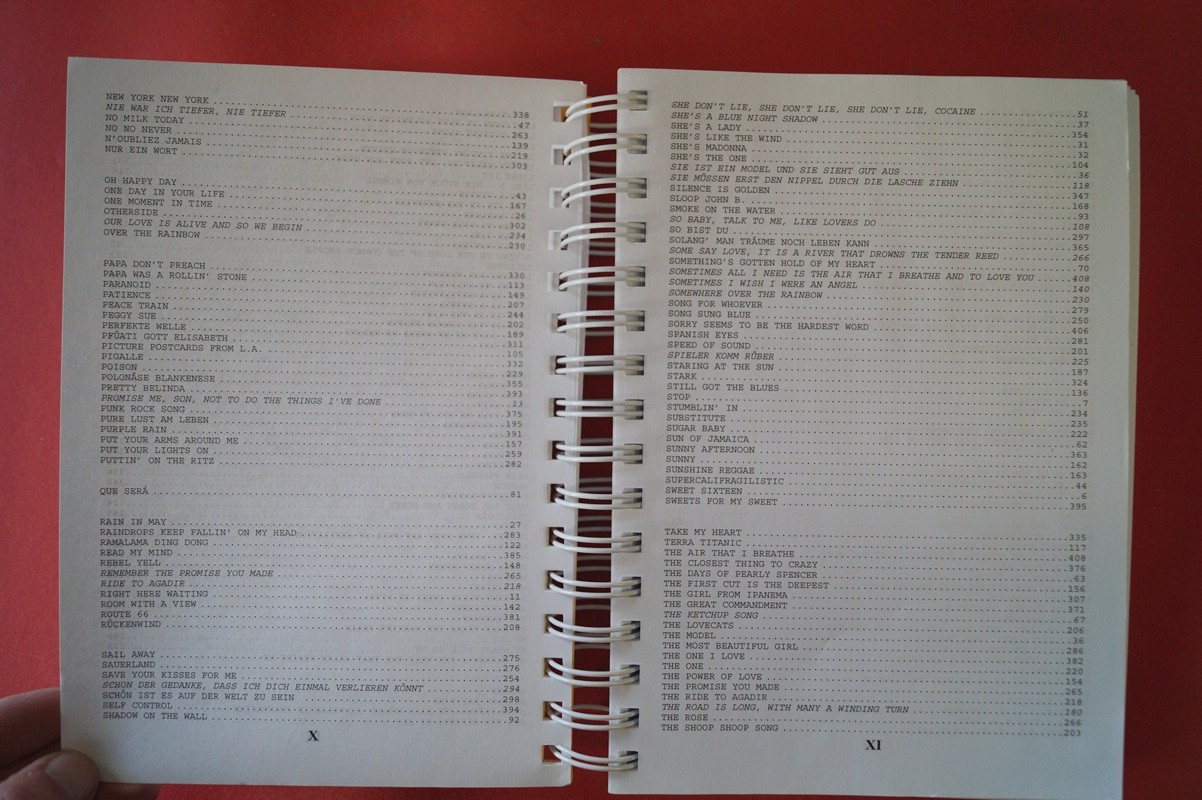 NEW YORK NEW YORK ... 338
NIE WAR ICH TIEFER, NIE TIEFER ... 47
NO MILK TODAY ... 263
NO NO NEVER ... 139
N'OUBLIEZ JAMAIS ... 219
NUR EIN WORT ... 303
OH HAPPY DAY ... 43
ONE DAY IN YOUR LIFE ... 167
ONE MOMENT IN TIME ... 26
OTHERSIDE ... 302
OUR LOVE IS ALIVE AND SO WE BEGIN ... 234
OVER THE RAINBOW ... 230
PAPA DON'T PREACH ... 330
PAPA WAS A ROLLIN' STONE ... 113
PARANOID ... 149
PATIENCE ... 207
PEACE TRAIN ... 244
PEGGY SUE ... 202
PERFEKTE WELLE ... 189
PFÜATI GOTT ELISABETH ... 311
PICTURE POSTCARDS FROM L.A. ... 105
PIGALLE ... 332
POISON ... 229
POLONÄSE BLANKENESE ... 355
PRETTY BELINDA ... 393
PROMISE ME, SON, NOT TO DO THE THINGS I'VE DONE ... 13
PUNK ROCK SONG ... 375
PURE LUST AM LEBEN ... 195
PURPLE RAIN ... 391
PUT YOUR ARMS AROUND ME ... 157
PUT YOUR LIGHTS ON ... 259
PUTTIN' ON THE RITZ ... 282
QUE SERÁ ... 81
RAIN IN MAY ... 27
RAINDROPS KEEP FALLIN' ON MY HEAD ... 283
RAMALAMA DING DONG ... 122
READ MY MIND ... 385
REBEL YELL ... 148
REMEMBER THE PROMISE YOU MADE ... 265
RIDE TO AGADIR ... 218
RIGHT HERE WAITING ... 11
ROOM WITH A VIEW ... 142
ROUTE 66 ... 381
RÜCKENWIND ... 208
SAIL AWAY ... 275
SAUERLAND ... 276
SAVE YOUR KISSES FOR ME ... 254
SCHON DER GEDANKE, DASS ICH DICH EINMAL VERLIEREN KÖNNT ... 294
SCHÖN IST ES AUF DER WELT ZU SEIN ... 298
SELF CONTROL ... 394
SHADOW ON THE WALL ... 92
X
SHE DON'T LIE, SHE DON'T LIE, SHE DON'T LIE, COCAINE ... 51
SHE'S A BLUE NIGHT SHADOW ... 37
SHE'S A LADY ... 354
SHE'S LIKE THE WIND ... 31
SHE'S MADONNA ... 32
SHE'S THE ONE ... 104
SIE IST EIN MODEL UND SIE SIEHT GUT AUS ... 36
SIE MÜSSEN ERST DEN NIPPEL DURCH DIE LASCHE ZIEHN ... 118
SILENCE IS GOLDEN ... 347
SLOOP JOHN B. ... 168
SMOKE ON THE WATER ... 93
SO BABY, TALK TO ME, LIKE LOVERS DO ... 108
SO BIST DU ... 297
SOLANG' MAN TRÄUME NOCH LEBEN KANN ... 365
SOME SAY LOVE, IT IS A RIVER THAT DROWNS THE TENDER REED ... 266
SOMETHING'S GOTTEN HOLD OF MY HEART ... 70
SOMETIMES ALL I NEED IS THE AIR THAT I BREATHE AND TO LOVE YOU ... 408
SOMETIMES I WISH I WERE AN ANGEL ... 140
SOMEWHERE OVER THE RAINBOW ... 230
SONG FOR WHOEVER ... 279
SONG SUNG BLUE ... 250
SORRY SEEMS TO BE THE HARDEST WORD ... 406
SPANISH EYES ... 281
SPEED OF SOUND ... 201
SPIELER KOMM RÜBER ... 225
STARING AT THE SUN ... 187
STARK ... 324
STILL GOT THE BLUES ... 136
STOP ... 7
STUMBLIN' IN ... 234
SUBSTITUTE ... 235
SUGAR BABY ... 222
SUN OF JAMAICA ... 62
SUNNY AFTERNOON ... 363
SUNNY ... 162
SUNSHINE REGGAE ... 163
SUPERCALIFRAGILISTIC ... 44
SWEET SIXTEEN ... 6
SWEETS FOR MY SWEET ... 395
TAKE MY HEART ... 335
TERRA TITANIC ... 117
THE AIR THAT I BREATHE ... 408
THE CLOSEST THING TO CRAZY ... 376
THE DAYS OF PEARLY SPENCER ... 63
THE FIRST CUT IS THE DEEPEST ... 156
THE GIRL FROM IPANEMA ... 307
THE GREAT COMMANDMENT ... 371
THE KETCHUP SONG ... 67
THE LOVECATS ... 206
THE MODEL ... 36
THE MOST BEAUTIFUL GIRL ... 286
THE ONE I LOVE ... 382
THE ONE ... 220
THE POWER OF LOVE ... 154
THE PROMISE YOU MADE ... 265
THE RIDE TO AGADIR ... 218
THE ROAD IS LONG, WITH MANY A WINDING TURN ... 180
THE ROSE ... 266
THE SHOOP SHOOP SONG ... 203
XI